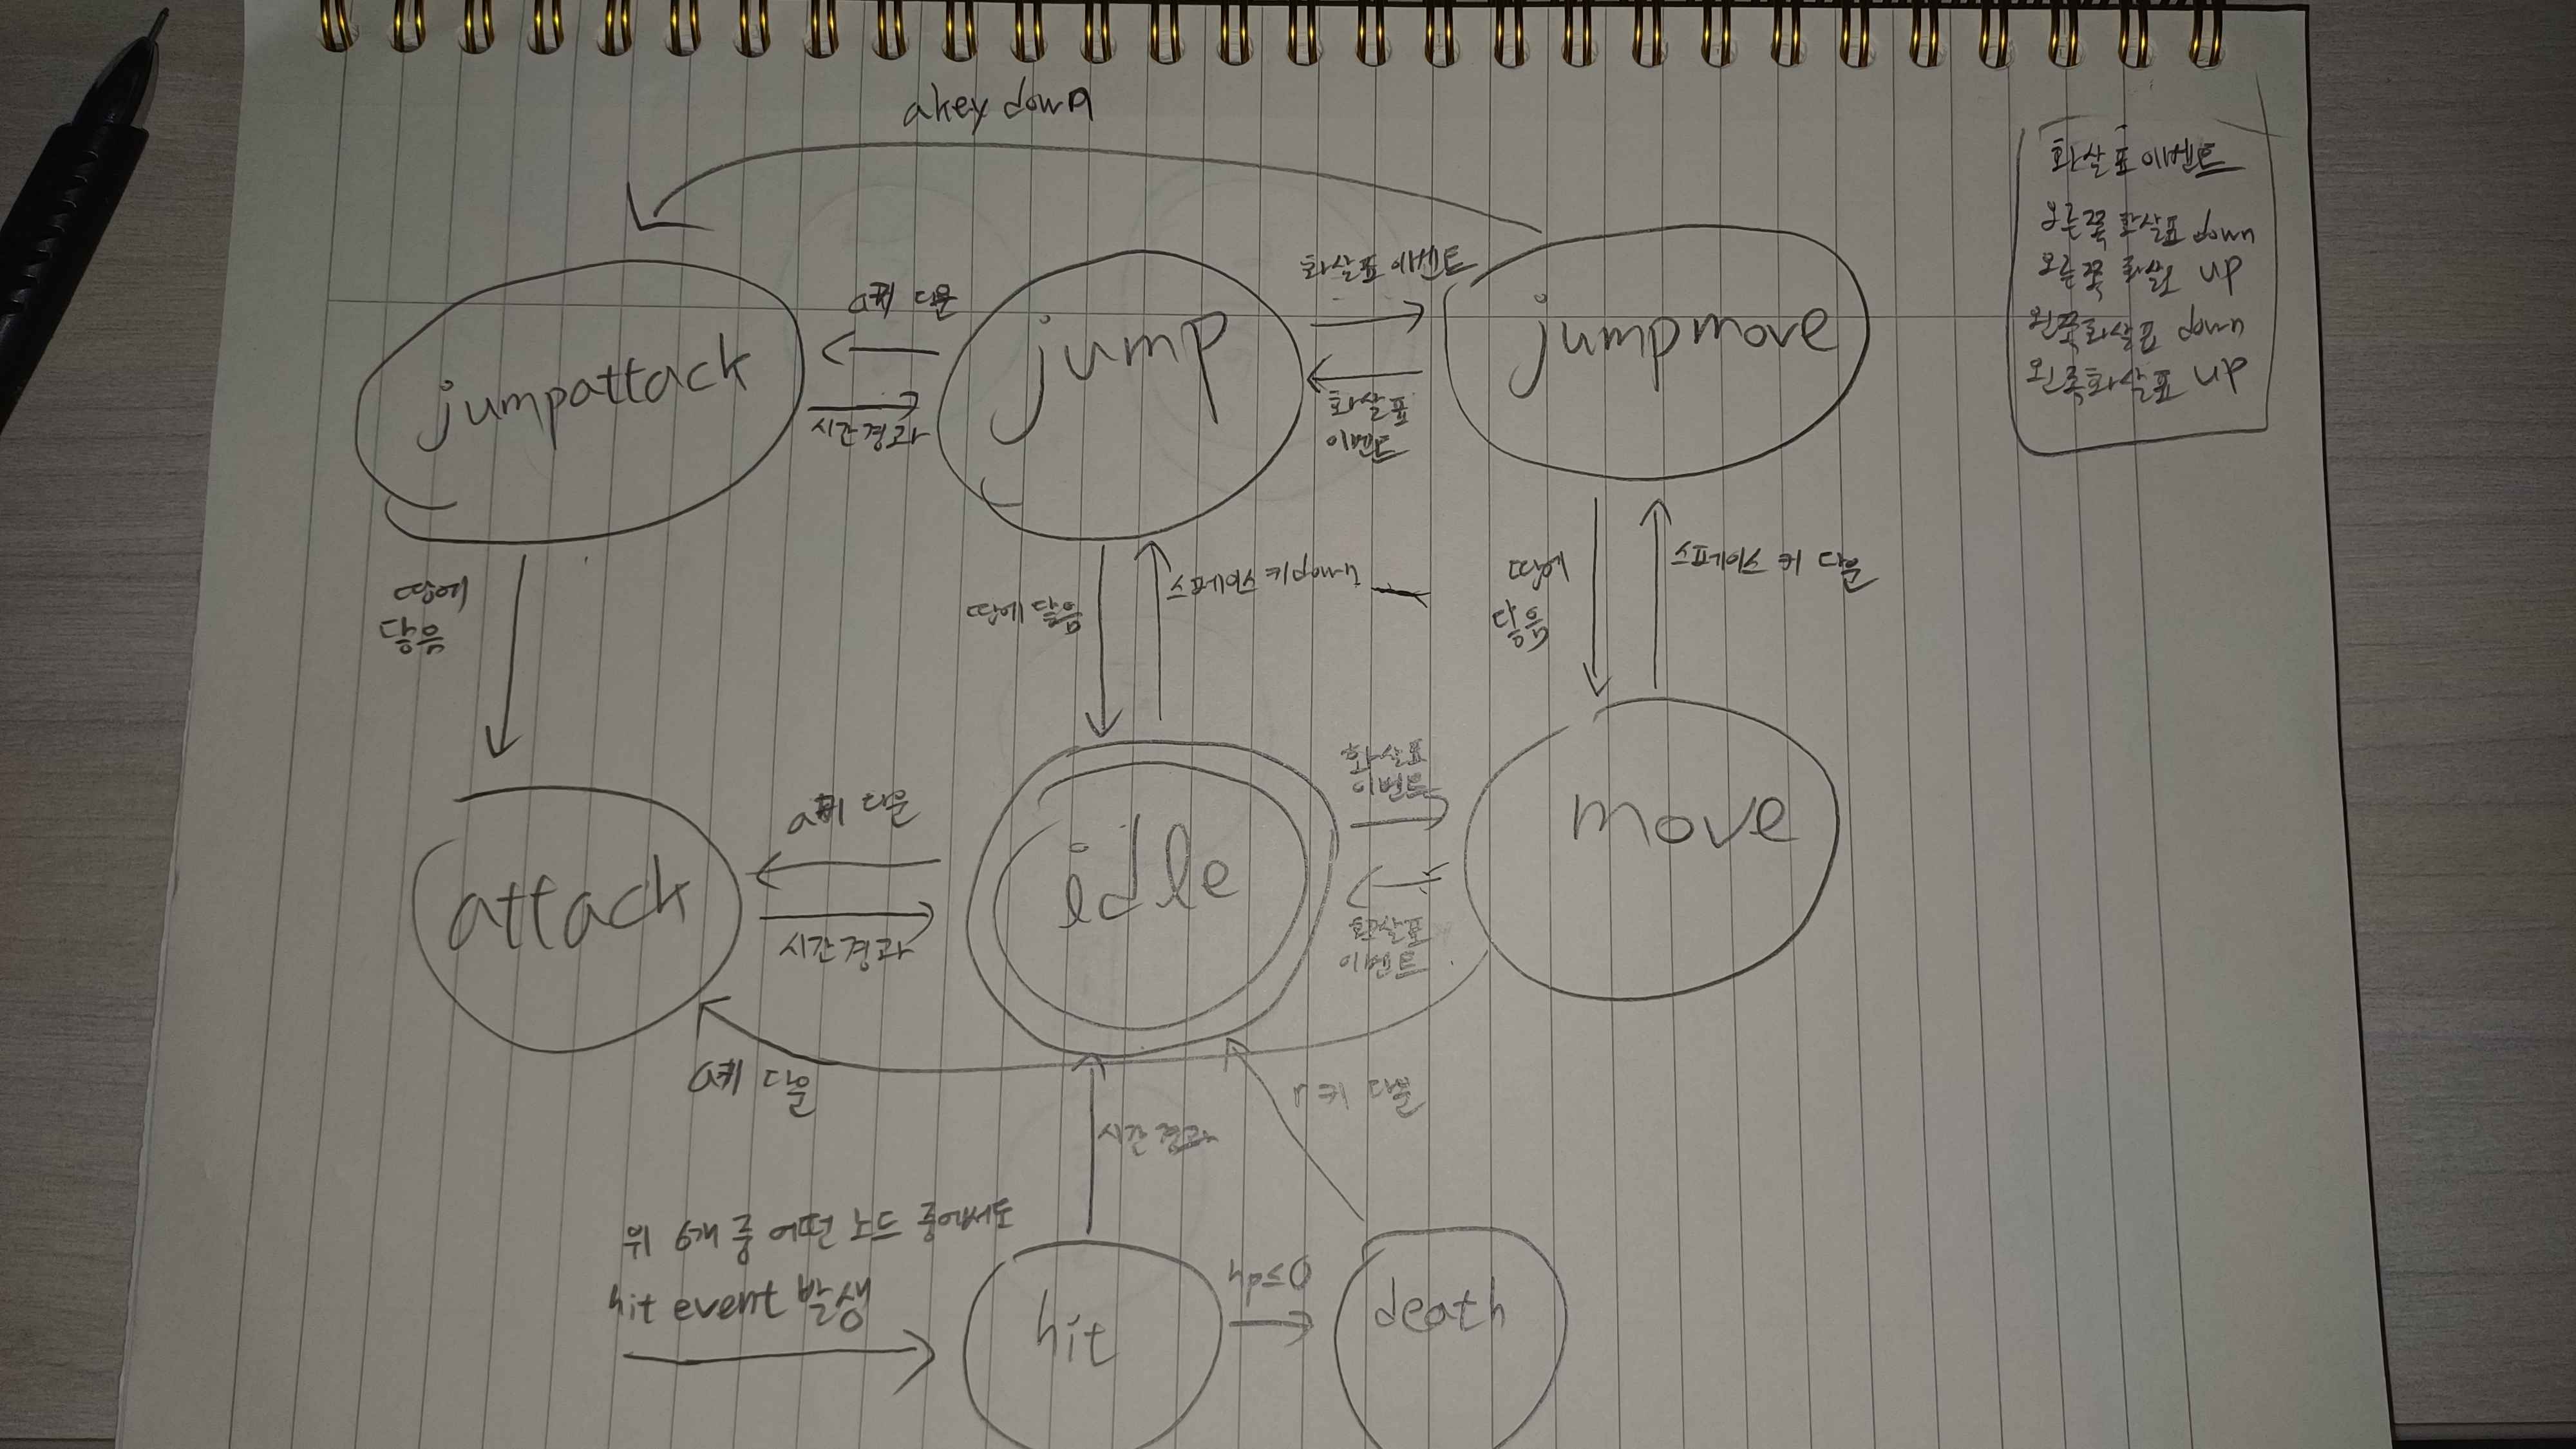 akey down
화살표 이벤트
오른쪽 화살표 down
오른쪽 화살표 up
왼쪽화살표 down
왼쪽화살표 up
jumpattack
a키 다운
시간경과
jump
화살표 이벤트
화살표
이벤트
jumpmove
땅에
닿음
땅에 닿음
스페이스 키down
땅에
닿음
스페이스 키 다운
attack
a키 다운
시간경과
idle
화살표
이벤트
화살표
이벤트
move
a키 다운
시간경과
r키 다운
위 6개 중 어떤 노드 중에서도
hit event 발생
hit
hp≤0
death